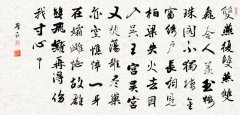 雙燕復雙燕雙
飛令人羨玉樓
珠閣不獨棲金
窗繡戶長相見
柏梁失火去因
入吳王宮吳宮
又焚蕩雛盡巢
亦空憔悴一身
在孀雌憶故雄
雙飛難再得傷
我寸心中